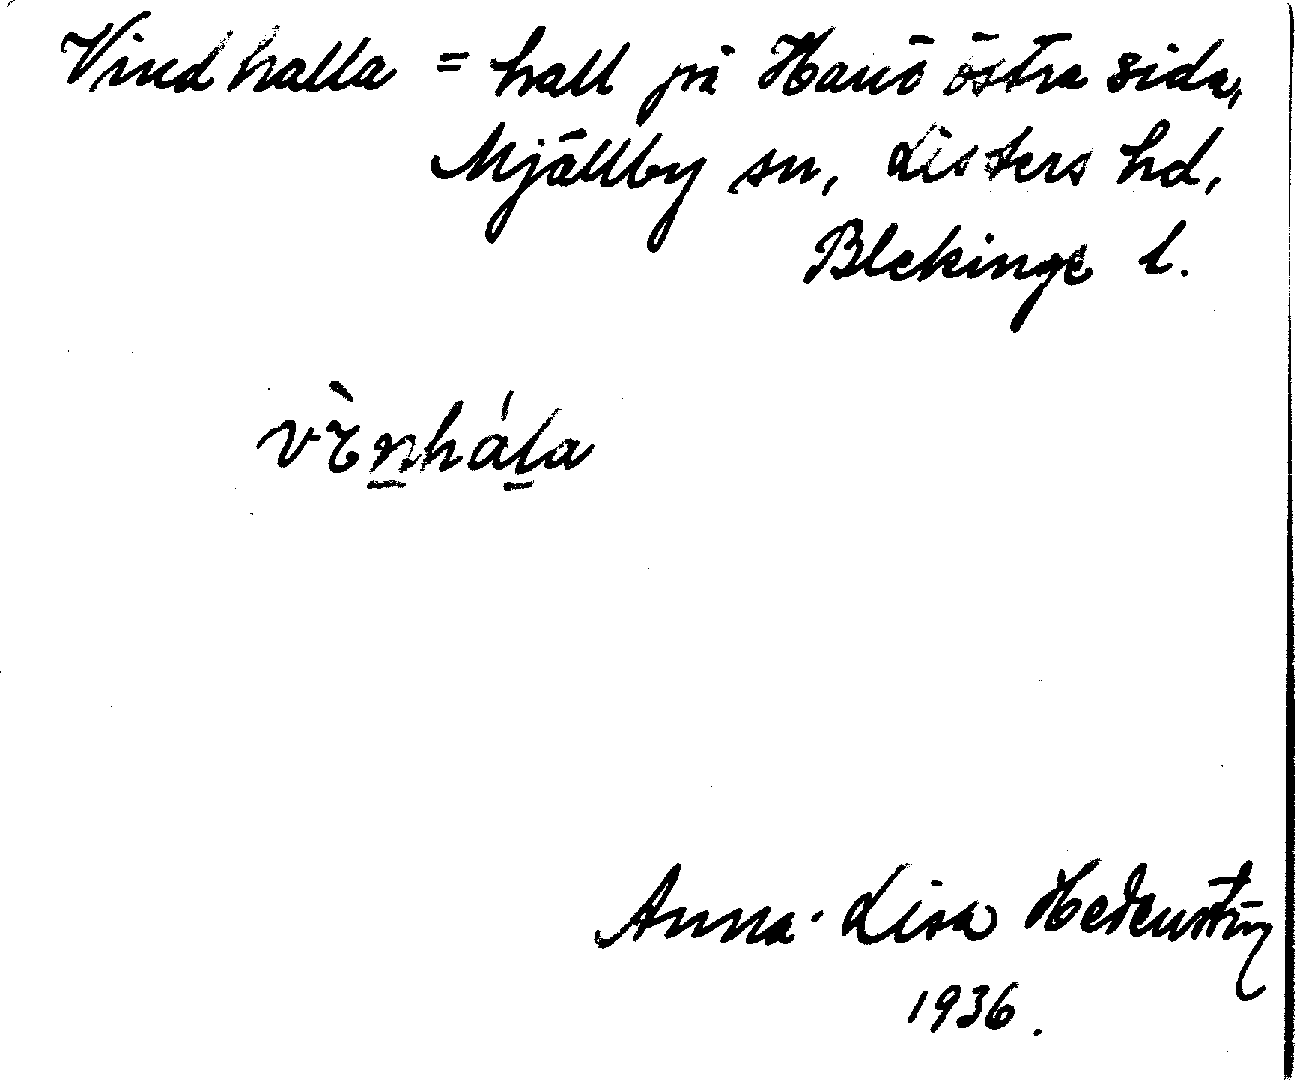 Vindhalla = hall på Hanö östra sida,
Mjällby sn, Listers hd,
Blekinge l.
vɪ̀n̲hál̲a
Anna-Lisa
1936.